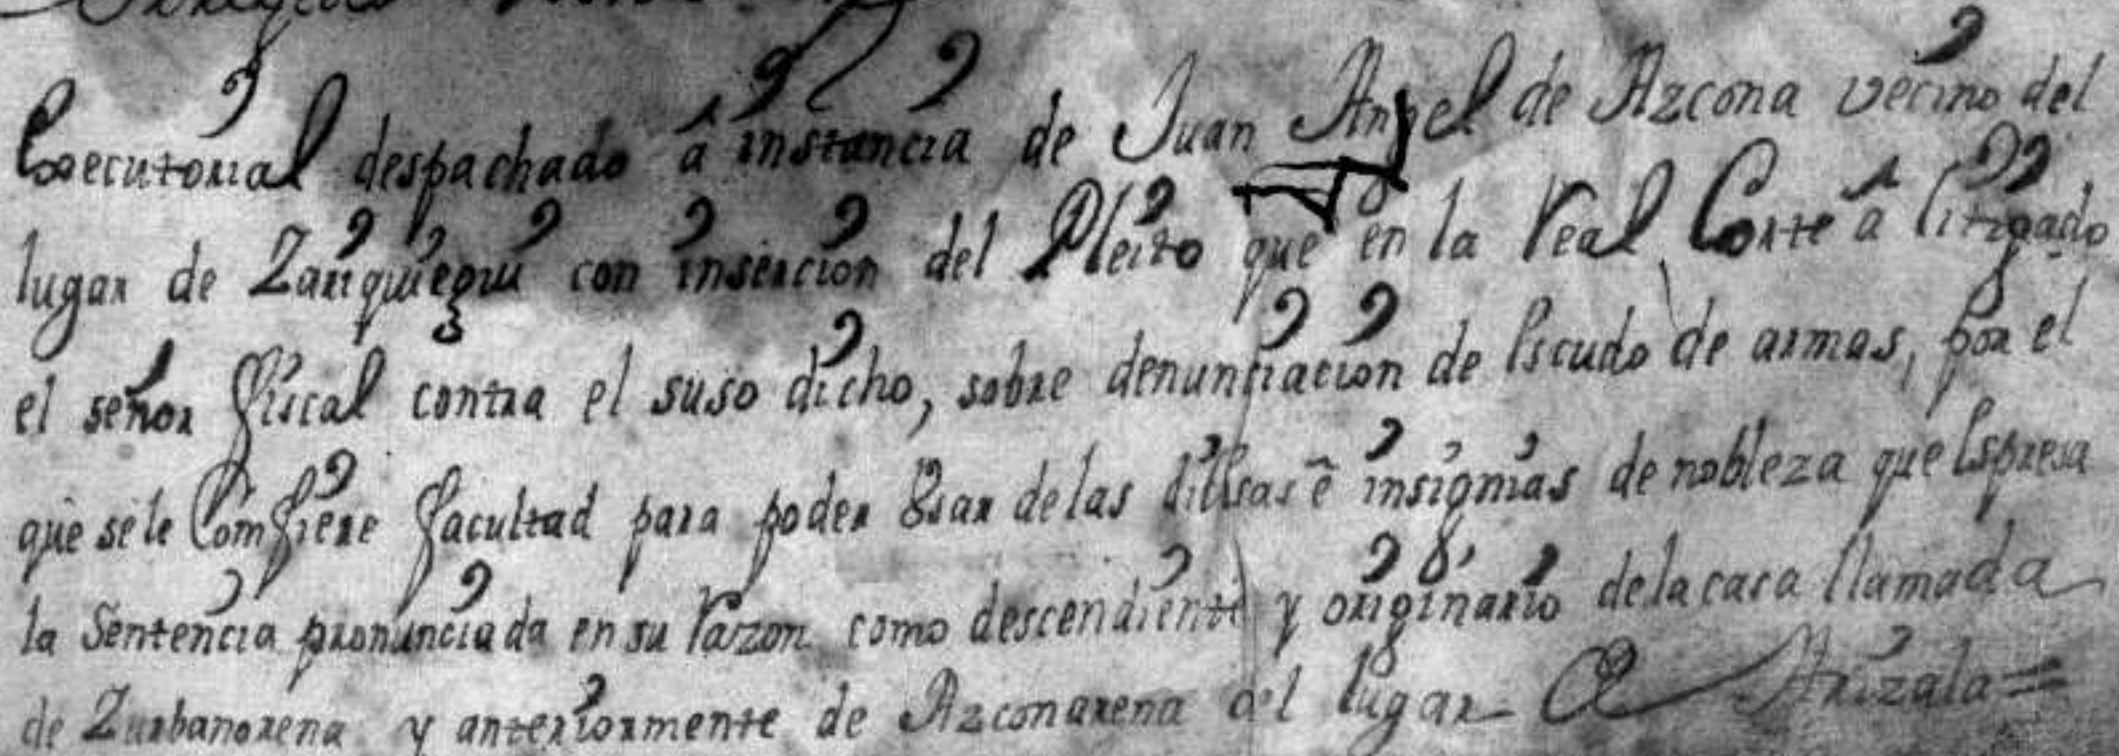 Executorial despachado â instancia de Juan Angel de Azcona vecino del
lugar de Zariquiegui con insercion del Pleito que en la Real Corte â litigado
el señor fiscal contra el suso dicho, sobre denunciacion de Escudo de armas, por el
que se le Comfiere facultad para poder Vsar de las dibisas ê insignias de nobleza que Espresa
la Sentencia pronunciada en su Razon como descendiente y originario de la casa llamada
de Zurbanorena y anteriormente de Azconarena del Lugar de Arizala =